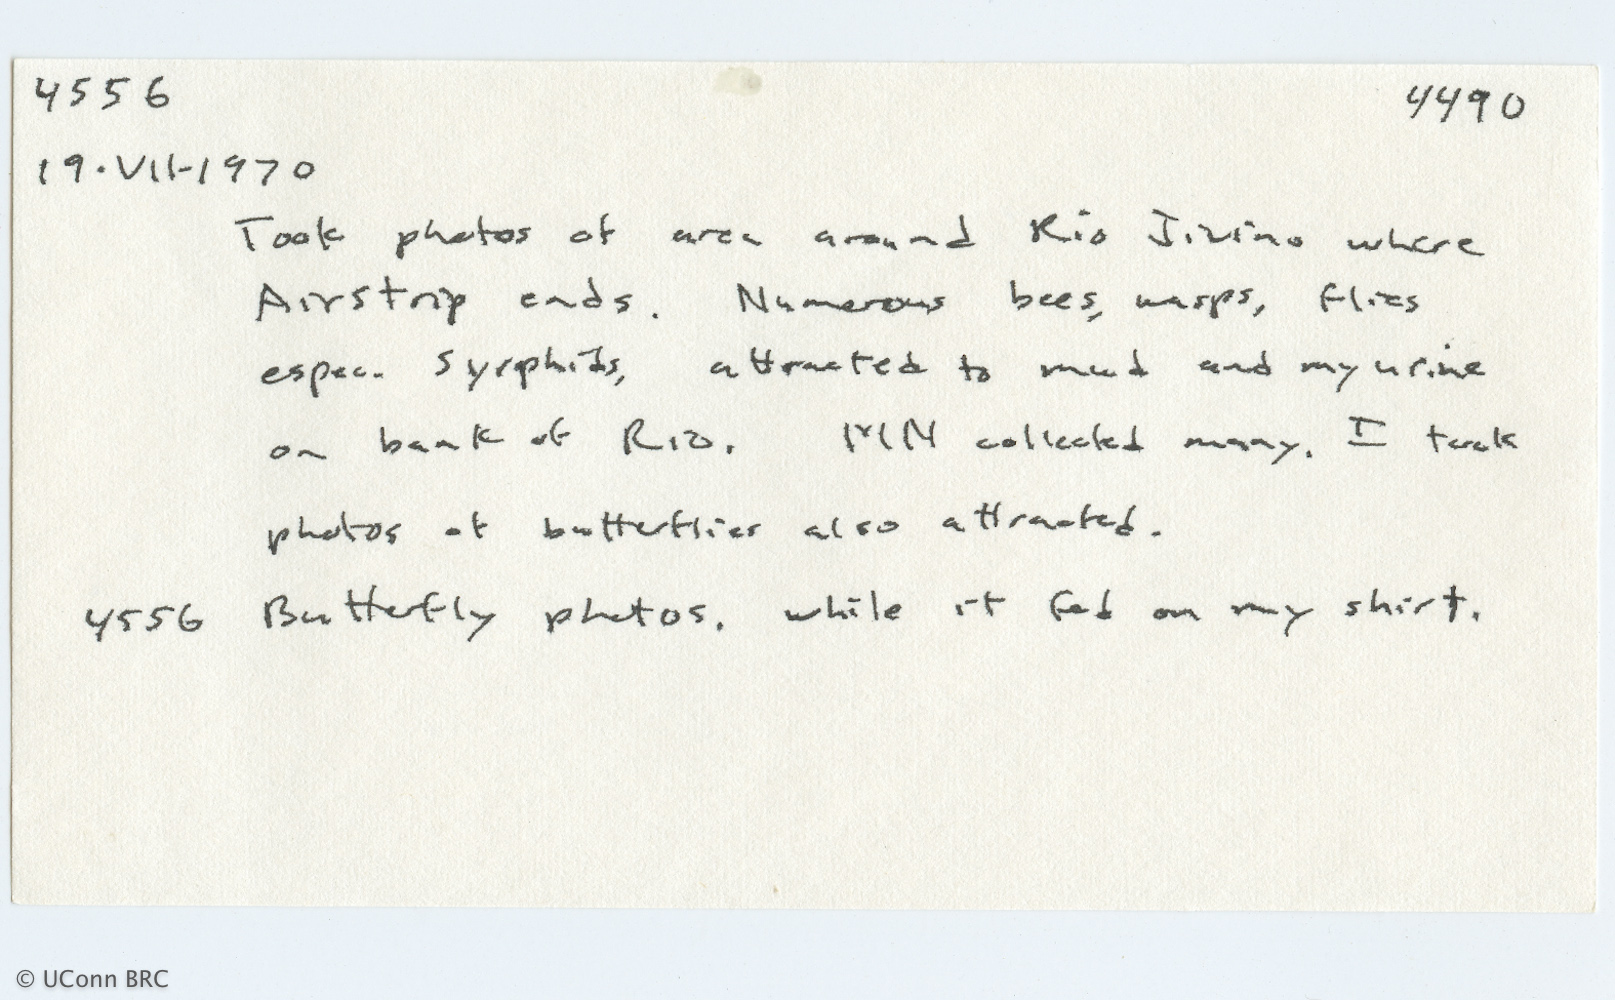 4556 4490
19·VII-1970
Took photos of area around Rio Jivino where
Airstrip ends. Numerous bees, wasps, flies
espec. Syrphids, attracted to mud and my urine
on bank of Rio. MN collected many. I took
photos of butterflies also attracted.
4556 Butterfly photos. while it fed on my shirt.
© UConn BRC